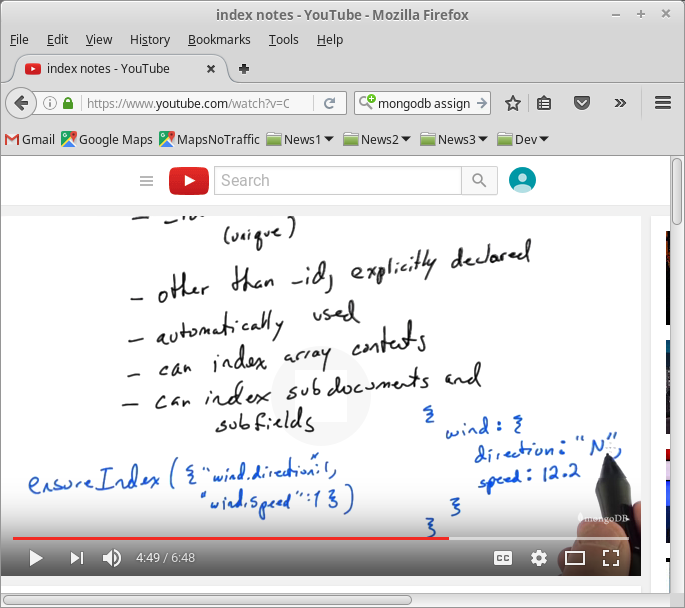 index notes - YouTube - Mozilla Firefox
File Edit View History Bookmarks Tools Help
index notes - YouTube
https://www.youtube.com/watch?v=C
mongodb assign
Gmail Google Maps MapsNoTraffic News1 News2 News3 Dev
Search
(unique)
- other than _id, explicitly declared
- automatically used
- can index array contents
- can index subdocuments and
subfields
{
wind: {
direction: "N",
speed: 12.2
}
}
ensureIndex({"wind.direction":1,
"wind.speed":1})
mongoDB
4:49 / 6:48
CC